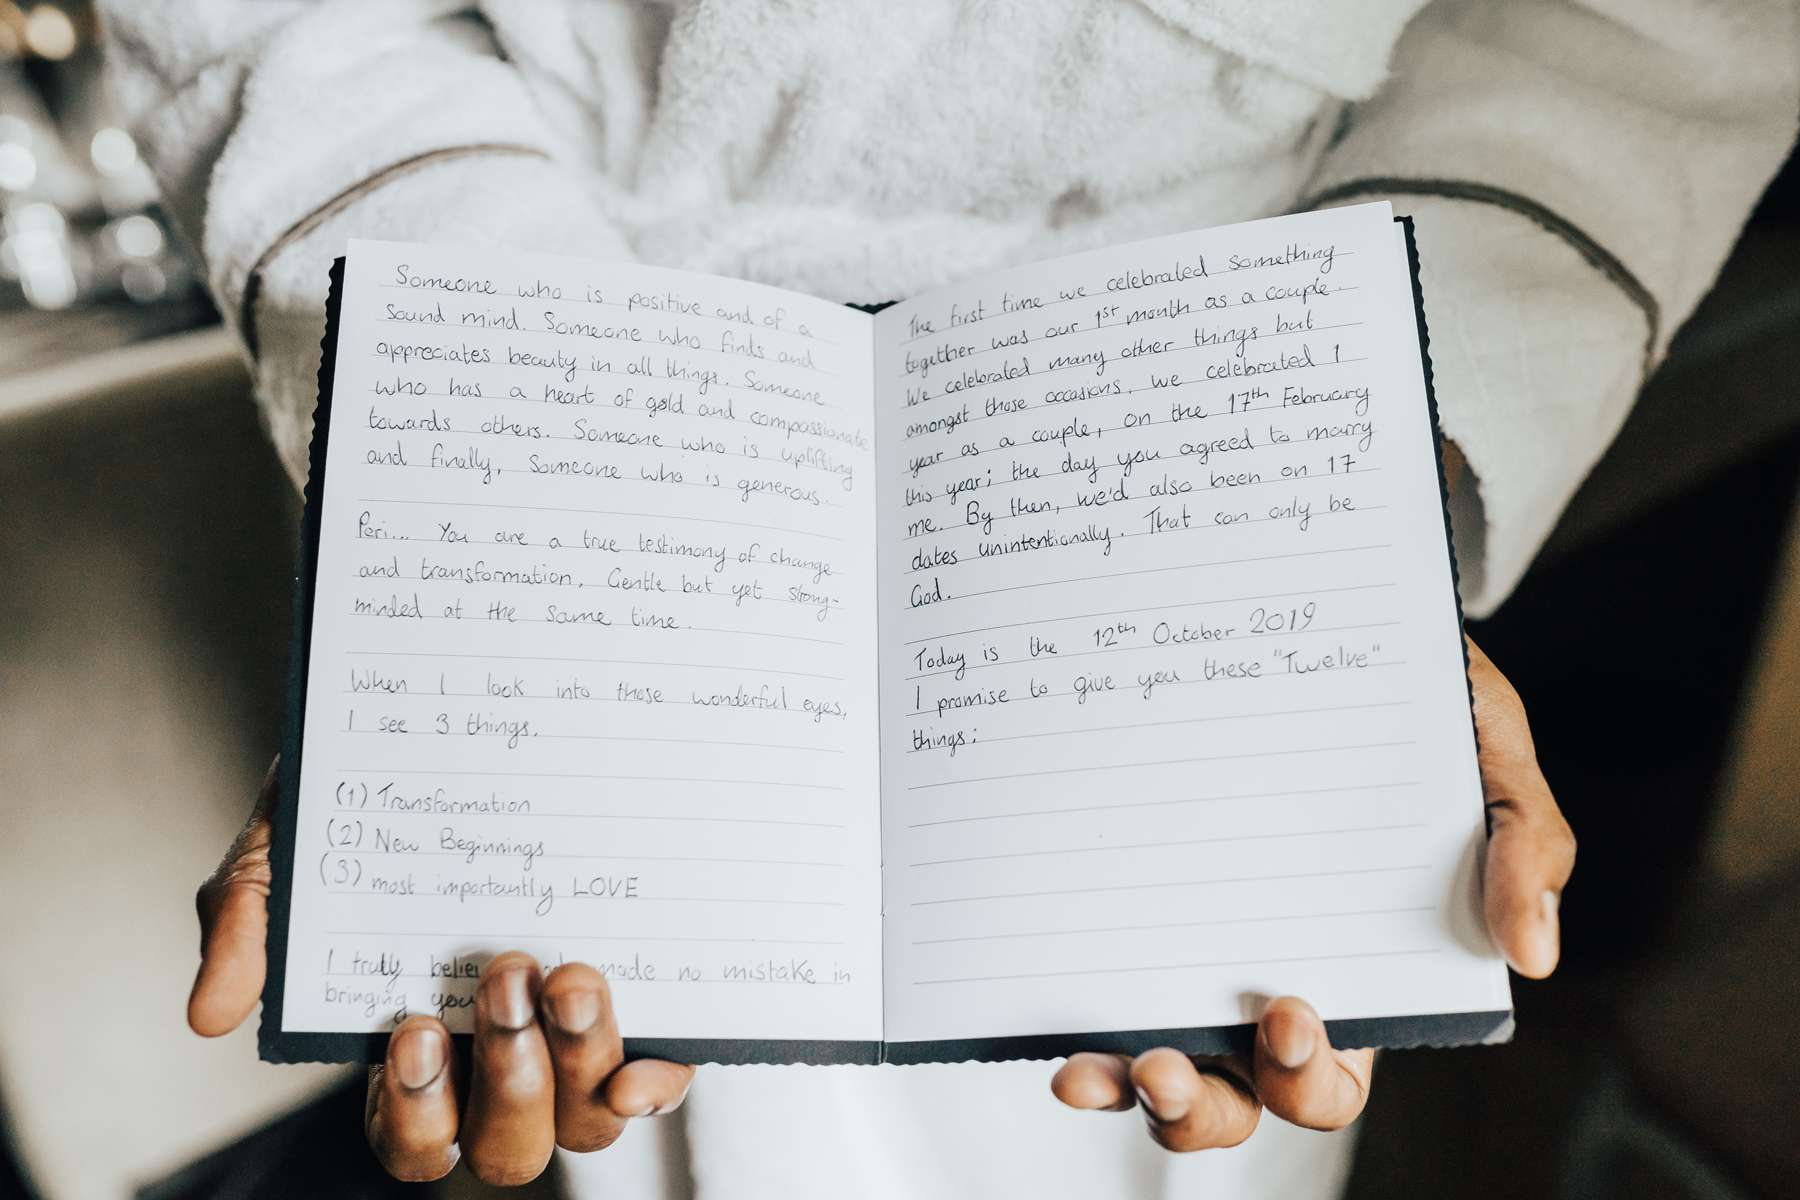 Someone who is positive and of a
sound mind. Someone who finds and
appreciates beauty in all things. Someone
who has a heart of gold and compassionate
towards others. Someone who is uplifting
and finally, someone who is generous.
Peri... You are a true testimony of change
and transformation. Gentle but yet strong-
minded at the same time.
When I look into those wonderful eyes,
I see 3 things.
(1) Transformation
(2) New Beginnings
(3) most importantly LOVE
I truly made no mistake in
bringing you
The first time we celebrated something
together was our 1st month as a couple.
We celebrated many other things but
amongst those occasions, we celebrated 1
year as a couple, on the 17th February
this year; the day you agreed to marry
me. By then, we'd also been on 17
dates unintentionally. That can only be
God.
Today is the 12th October 2019
I promise to give you these "Twelve"
things: